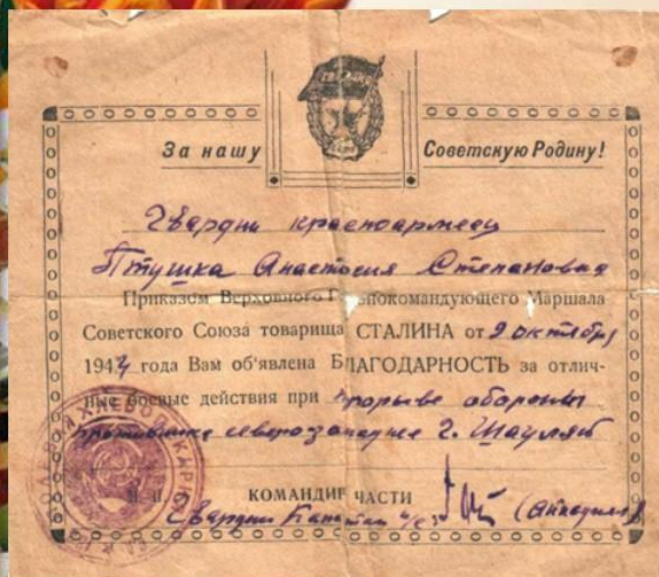 За нашу Советскую Родину!
Гвардии красноармеец
Птушка Анастасия Степановна
Приказом Верховного Главнокомандующего Маршала
Советского Союза товарища СТАЛИНА от 9 октября
1944 года Вам об'явлена БЛАГОДАРНОСТЬ за отлич-
ные боевые действия при прорыве обороны
противника северо западнее г. Шауляй
М. П. КОМАНДИР ЧАСТИ
Гвардии Капитан